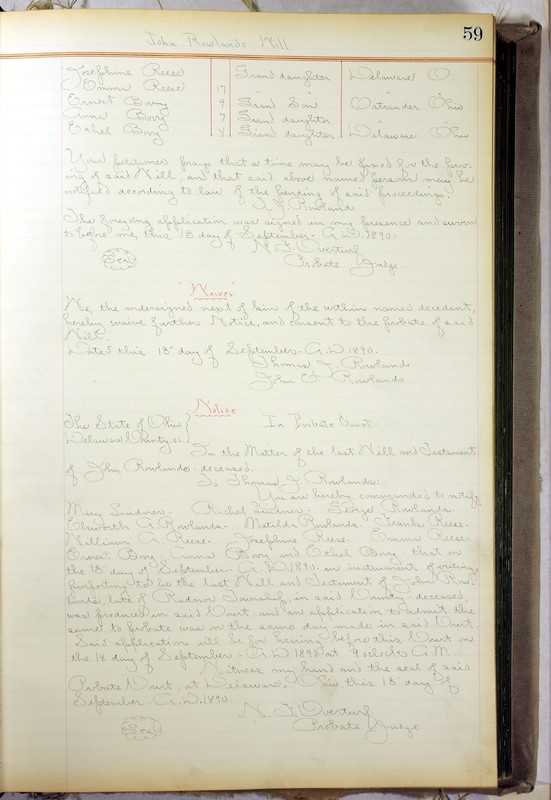 59
John Rowlands Will
Josephine Reese Grand daughter Delaware O.
Emma Reese 17 " "
Ernest Bovy 9 Grand Son Ostrander Ohio
Anna Bovy 7 Grand daughter " "
Ethel Bovy 4 Grand daughter Delaware Ohio
Your petitioner prays that a time may be fixed for the prov-
ing of said Will, and that said above named persons may be
notified according to law of the pending of said proceedings.
T. J. Rowland
The foregoing application was signed in my presence and sworn
to before me, this 13 day of September - A.D. 1890.
N. F. Overturf
Seal Probate Judge.
"Waiver"
We, the undersigned next of kin of the within named decedent,
hereby waive further Notice, and consent to the probate of said
Will.
Dated this 13" day of September - A.D. 1890.
Thomas J. Rowlands
John E. Rowlands
Notice
The State of Ohio } In Probate Court
Delaware County, ss. }
In the Matter of the last Will and Testament
of John Rowlands - deceased.
To Thomas J. Rowlands:
You are hereby commanded to notify
Mary Lindner - Rachel Lindner - George Rowlands.
Elsworth A. Rowlands - Matilda Rowlands. Franks Reese.
William A. Reese - Josephine Reese. Emma Reese.
Ernest Bovy. Anna Bovy and Ethel Bovy that on
the 13" day of September - A.D. 1890 - an instrument of writing,
purporting to be the last Will and Testament of John Row-
lands, late of Radnor Township, in said County, deceased,
was produced in said Court, and an application to admit the
same to probate was on the same day made in said Court
Said application will be for hearing before this Court on
the 18 day of September - A.D. 1890 at 9 oclock A.M.
Witness my hand and the seal of said
Probate Court, at Delaware, Ohio, this 13" day of
September. A.D. 1890
N. F. Overturf
Seal Probate Judge